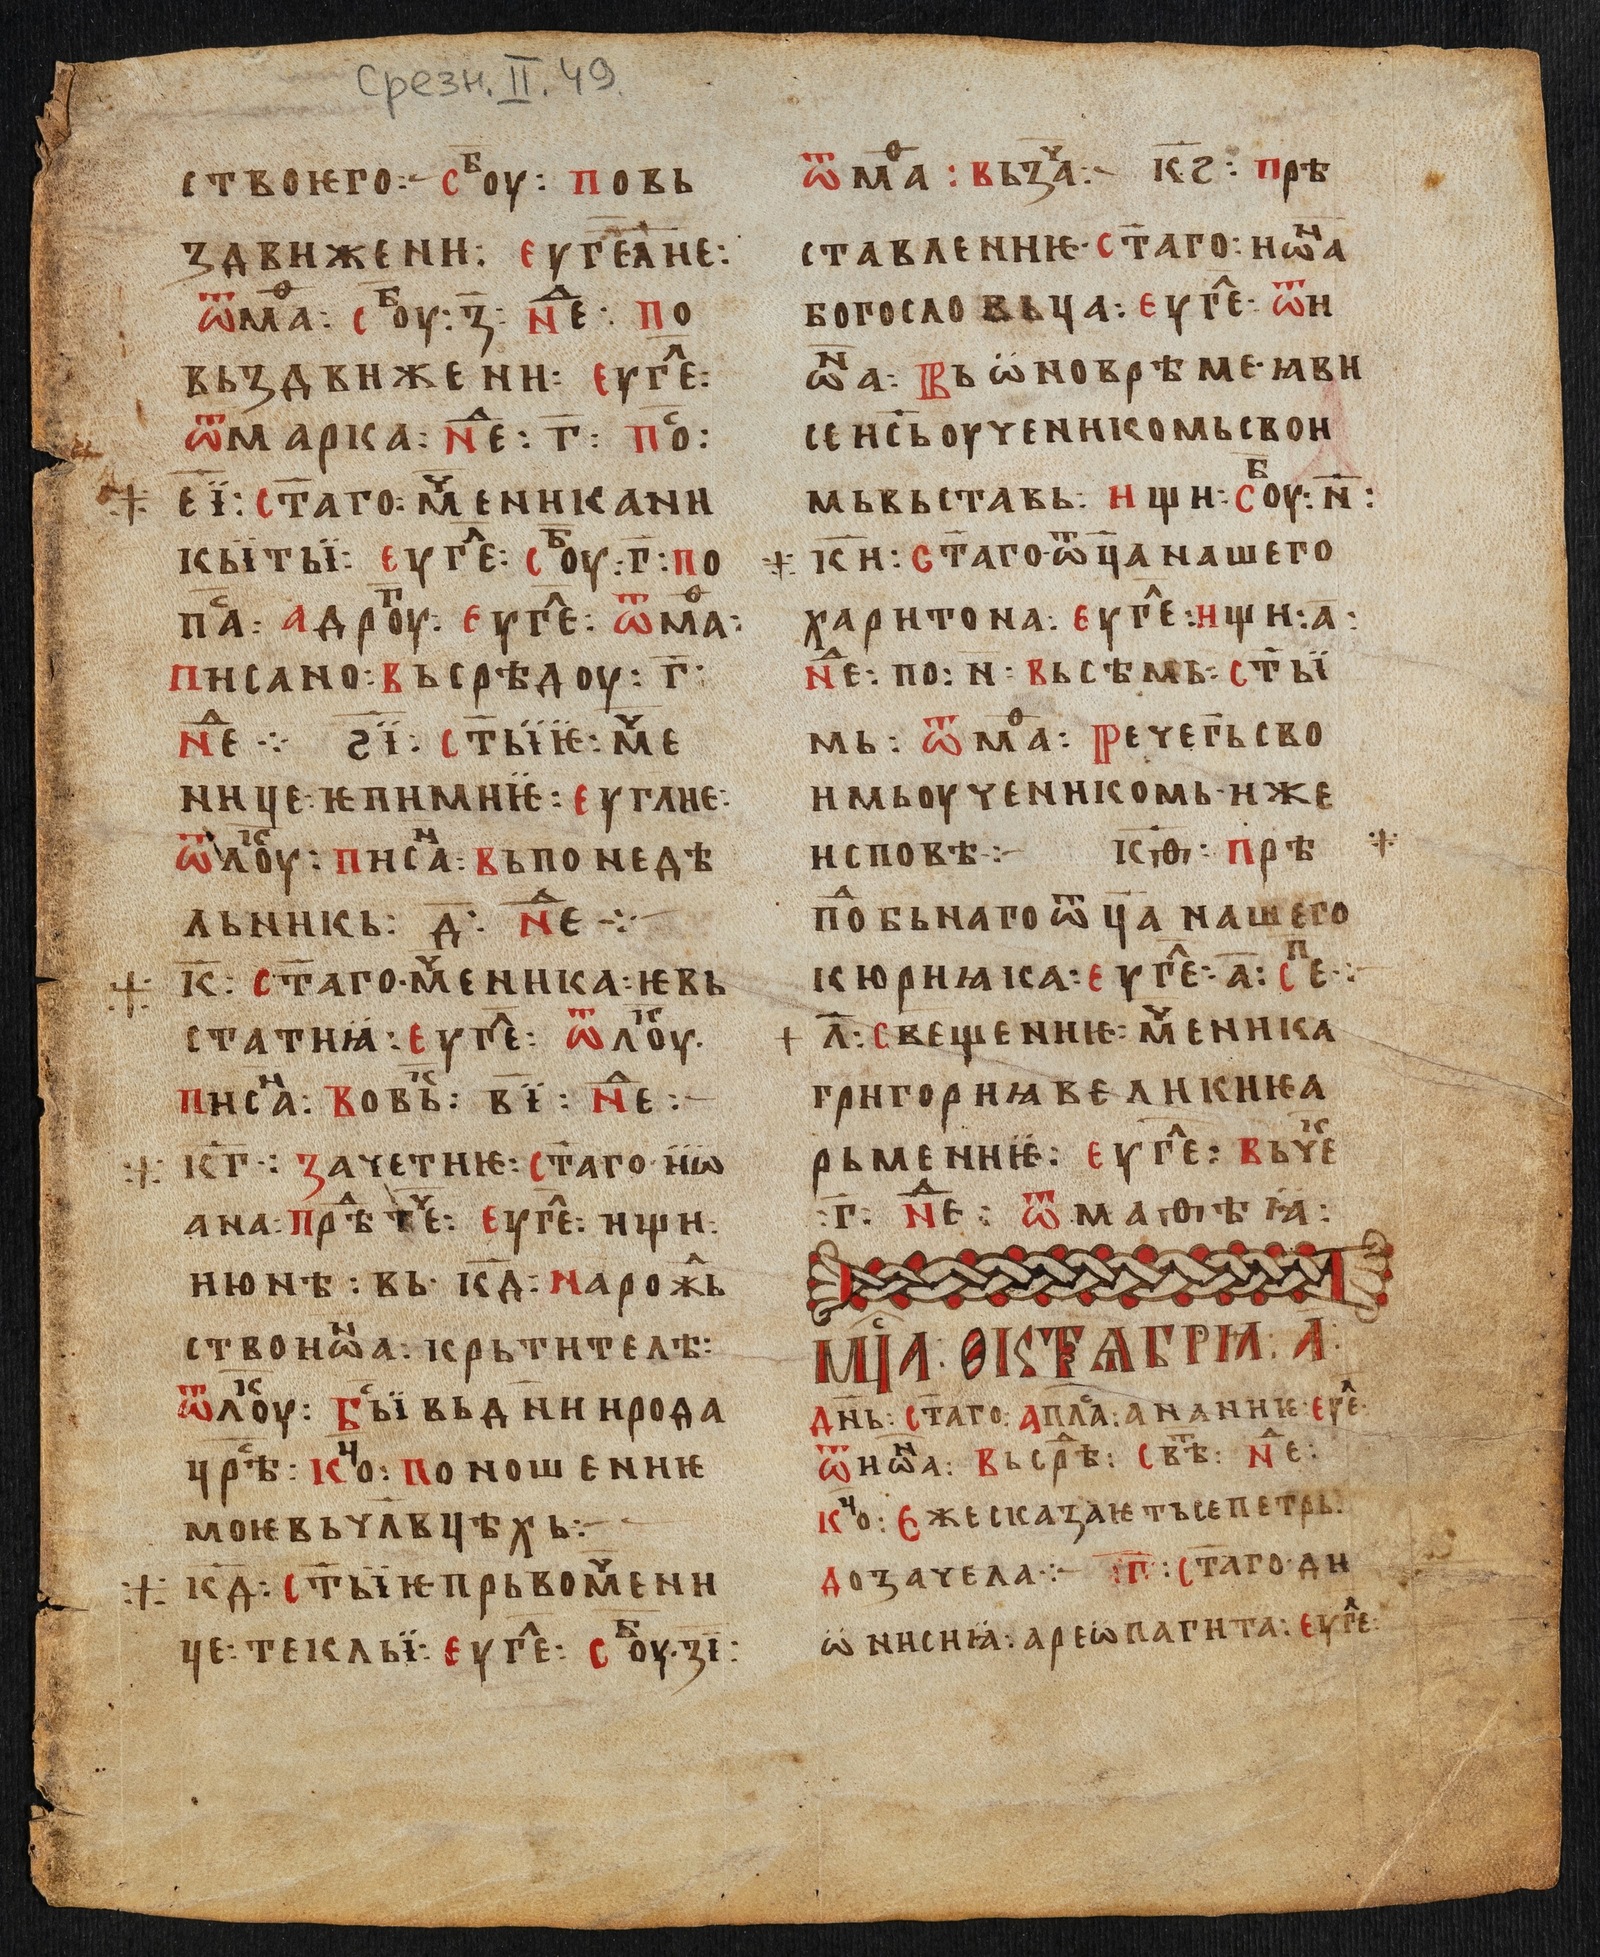 Срезн. II. 49.
ствоѥго:~ сⷠоу: повь
здвижени: еуг҃елие:
ѿмⷴа: сⷠоу: з҃: нⷣе: по
вьздвижени: еуг҃ⷧе:
ѿмарка: нⷣе: г҃: пⷭо:
е҃ї: ст҃аго: мⷱеникани
кӹтӹ: еуг҃ⷧе: сⷠоу: г҃: по
пⷭа: адрⷢоу: еуг҃ⷧе: ѿмⷴа:
писано: вьсрѣдоу: г҃:
нⷣе ⁘ ѕ҃ї: ст҃ӹѥ: мⷱе
нице: ѥпимнїѥ: еуглие:
ѿлⷦоу: писⷩа: вьпонедѣ
льникь: д҃: нⷣе ⁘
к҃: ст҃аго мⷱеника: ѥвь
статиꙗ: еуг҃ⷧе: ѿлⷦоу.
писⷩа: вовⷦь: в҃ї: нⷣе:~
к҃г: зачетиѥ: ст҃аго иѡ
ана: прⷣѣтⷱе: еуг҃ⷧе: ищи:
июнѣ: вь к҃д: нарожⷣь
ствоиѡⷩа: крьтителѣ:
ѿлⷦоу: бⷭӹ вьдн҃иирода
црⷭѣ: кⷰо: поношениѥ
моѥвьчл҃вцѣхь:~
к҃д: ст҃ӹѥпрьвомⷱени
це: теклӹ: еуг҃ⷧе: сⷠоу: з҃ї:
ѿмⷴа: вьзⷱа:~ к҃ѕ: прѣ
ставлениѥ ст҃аго: иѡⷩа
богословьца: еуг҃ⷧе: ѿи
ѡⷩа: Вьѡноврѣме ꙗви
сеис҃ьоученикомьсвои
мьвьставь: ищи: сⷠоу: н҃:
к҃и: ст҃аго ѿц҃анашего
харитона: еуг҃ⷧе: ищи: а҃:
нⷣе: по: н҃: вьсѣмь: ст҃ӹ
мь: ѿмⷴа: Речег҃ьсво
имьоученикомь иже
исповѣ:~ к҃ѳ: прѣ
пⷣобьнаго ѿц҃а нашего
кюриꙗка: еуг҃ⷧе: а҃: сⷫе ⁘
л҃: свещениѥ: мⷱеника
григориꙗвеликиѥа
рьмениѥ: еуг҃ⷧе: вьчⷦе
г҃: нⷣе: ѿмаѳѣꙗ:
Мⷭца: ѳктѧбриꙗ: а҃:
дн҃ь: ст҃аго: апⷭла: ананиѥ: еуⷢе
ѿиѡⷩа: вьсрⷣѣ: свⷮѣ: нⷣе:
кⷰо: Ежесказаѥтьсепетрь:
дозачела ⁘ г҃: ст҃аго ди
ѡнисиꙗ: ареѡпагита: еуг҃ⷧе: